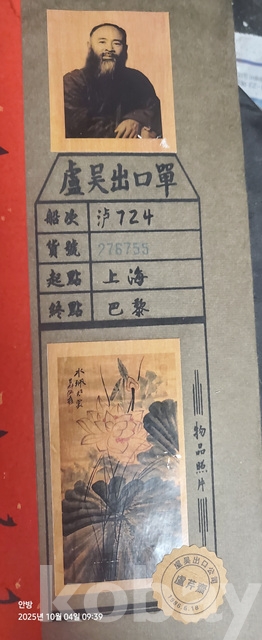 盧吴出口單
船次 泸724
貨號 276755
起點 上海
終點 巴黎
物品照片
盧吴出口公司
안방
2025년 10월 04일 09:39
kobay